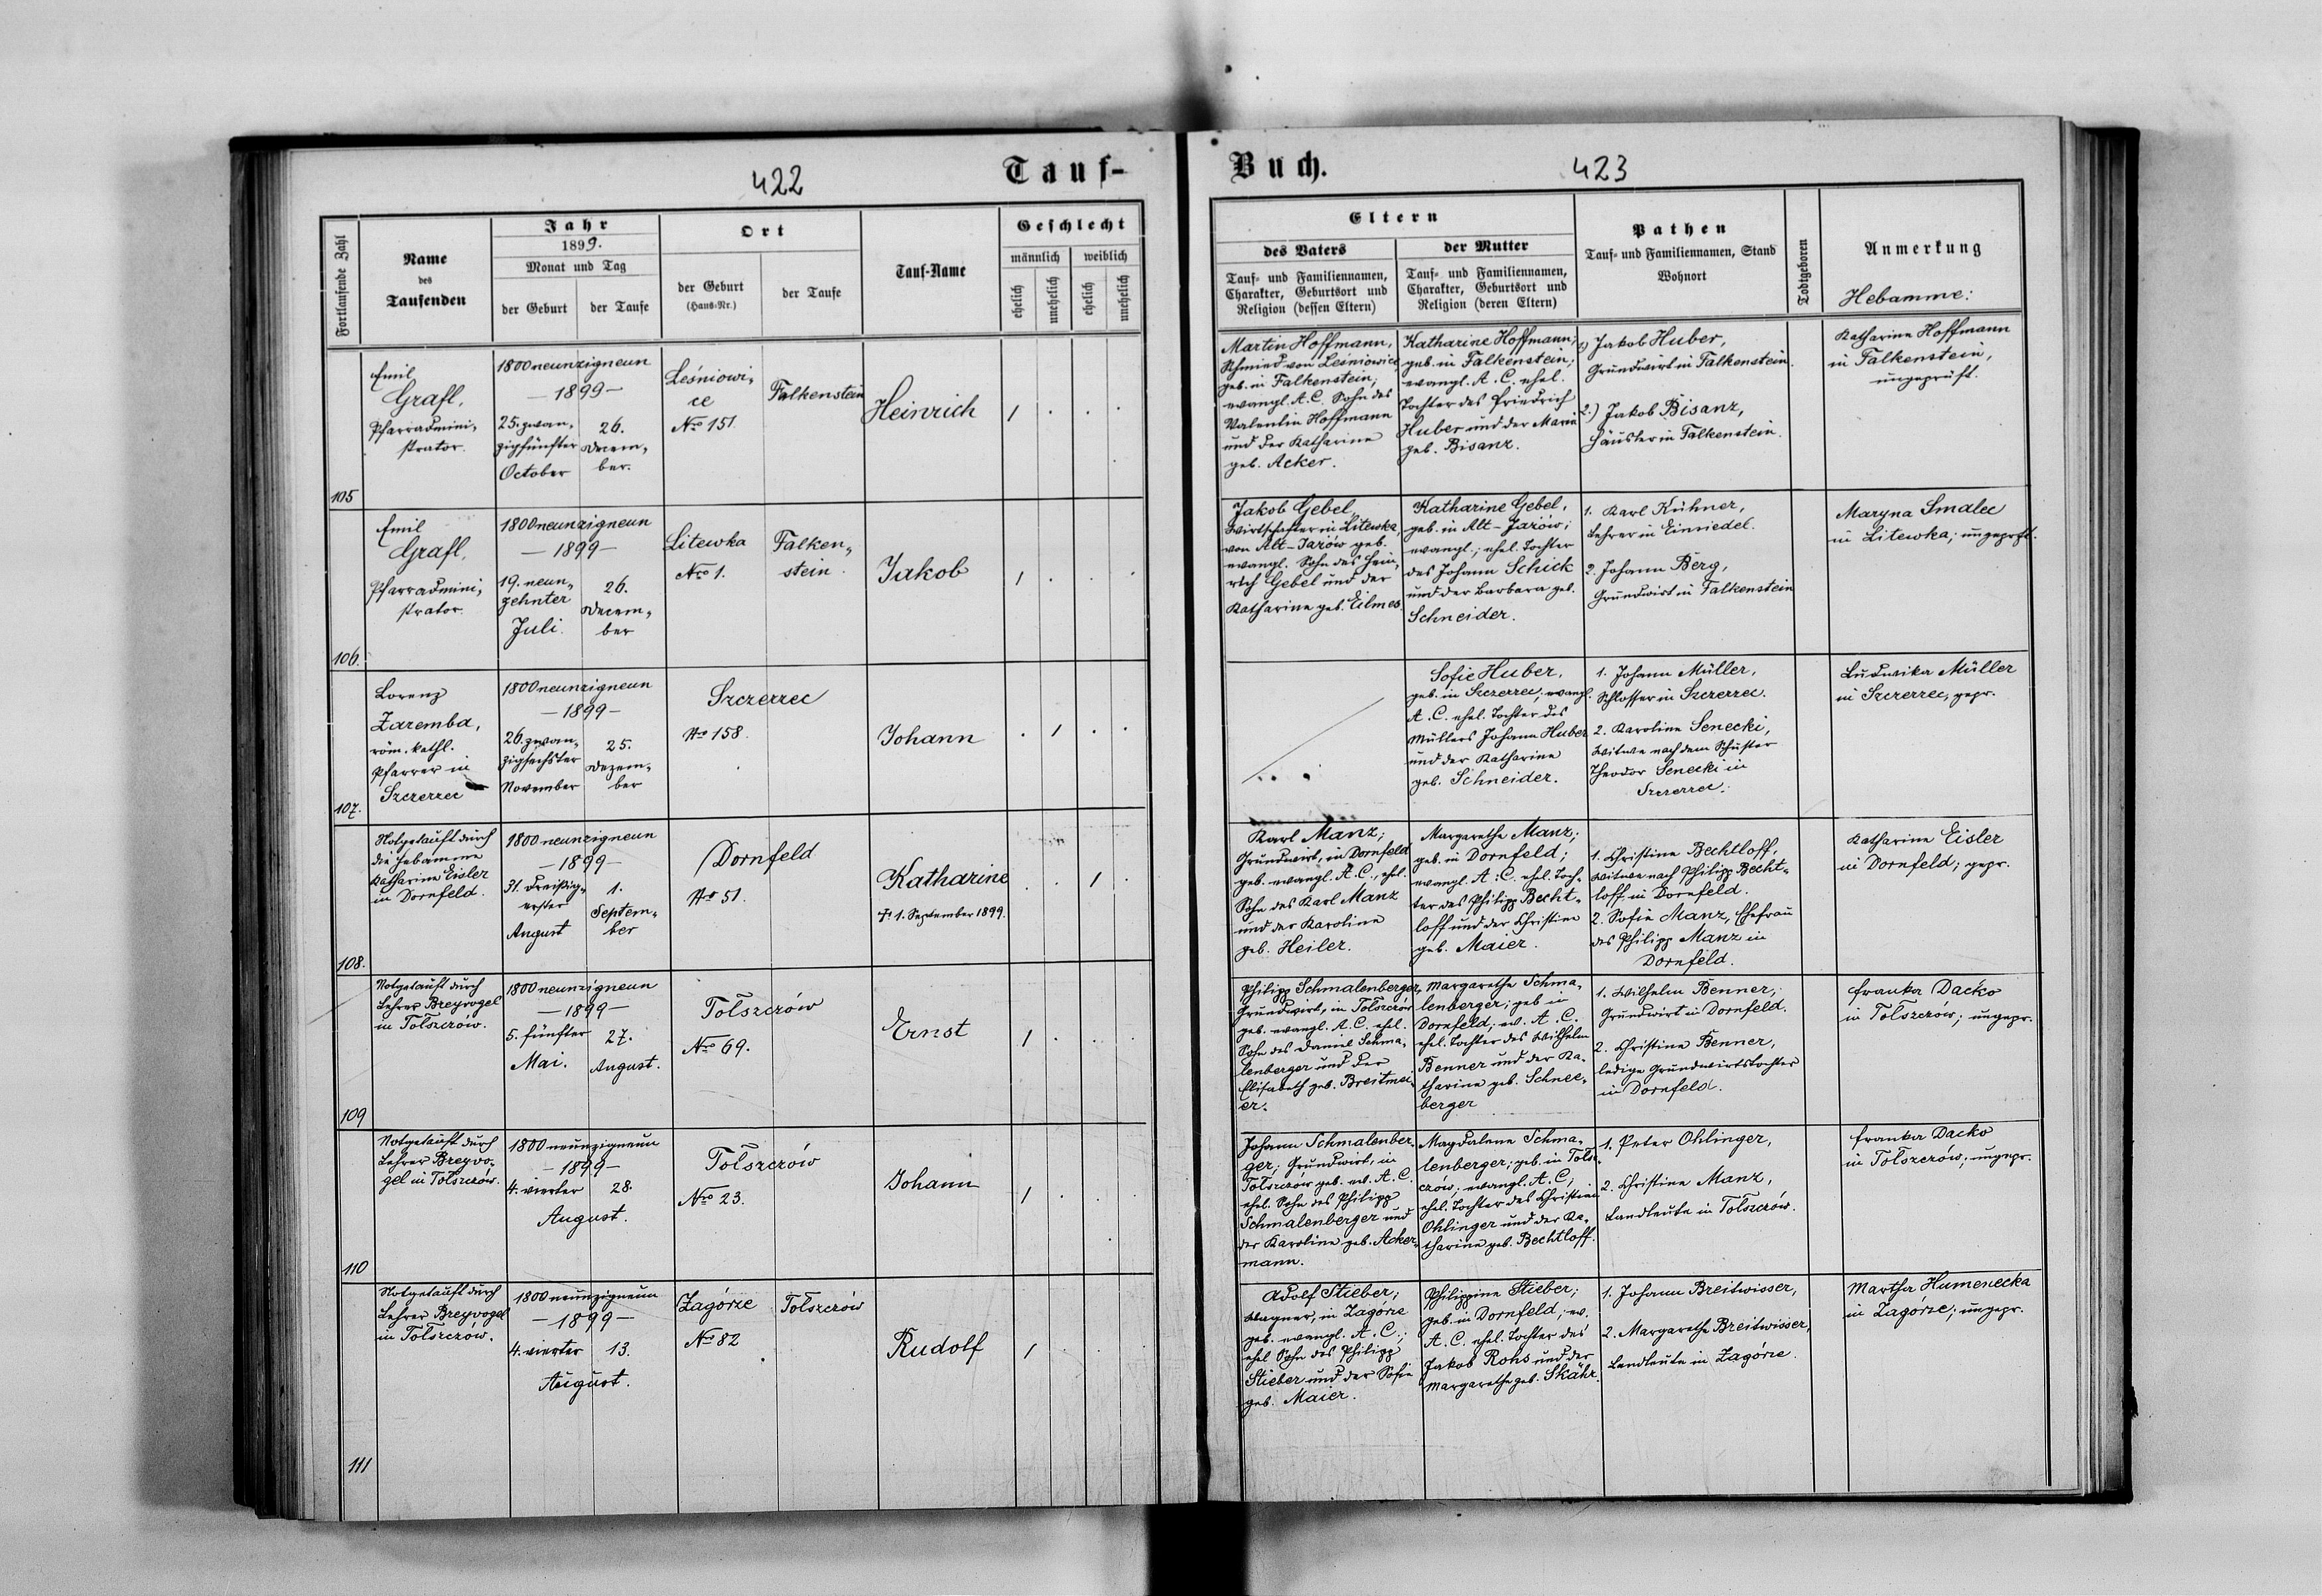 422
Tauf-
Buch.
423
Fortlaufende Zahl
Name
des
Taufenden
Jahr
1899.
Monat und Tag
der Geburt
der Taufe
Ort
der Geburt
(Haus-Nr.)
der Taufe
Tauf-Name
Geschlecht
männlich
weiblich
ehelich
unehelich
ehelich
unehelich
Eltern
des Vaters
Tauf- und Familiennamen,
Charakter, Geburtsort und
Religion (dessen Eltern)
der Mutter
Tauf- und Familiennamen,
Charakter, Geburtsort und
Religion (deren Eltern)
Pathen
Tauf- und Familiennamen, Stand
Wohnort
Todtgeboren
Anmerkung
Hebamme:
105
Emil
Grafl,
Pfarradmini-
strator.
1800neunzigneun
— 1899 —
25. zwan-
zigfünfter
October
26.
Decem-
ber.
Leśniowi-
ce
Nro 151
Falkenstein
Heinrich
1
Martin Hoffmann,
Schmied von Leśniowice,
geb. in Falkenstein;
evangl. A. C. Sohn des
Valentin Hoffmann
und der Katharine
geb. Acker.
Katharine Hoffmann,
geb. in Falkenstein;
evangl. A. C. ehel.
Tochter des Friedrich
Huber und der Maria
geb. Bisanz.
1) Jakob Huber,
Grundwirt in Falkenstein.
2.) Jakob Bisanz,
Häusler in Falkenstein.
Katharine Hoffmann
in Falkenstein,
ungeprüft.
106.
Emil
Grafl,
Pfarradmini-
strator.
1800neunzigneun
— 1899 —
19. neun-
zehnter
Juli.
26.
Decem-
ber
Litewka
Nro 1.
Falken-
stein.
Jakob
1
Jakob Gebel,
Wirtschafter in Litewka,
von Alt-Jazów geb.
evangl. Sohn des Hein-
rich Gebel und der
Katharine geb. Eilmes.
Katharine Gebel,
geb. in Alt-Jazów;
evangl.; ehel. Tochter
des Johann Schick
und der Barbara geb.
Schneider.
1. Karl Kühner,
Lehrer in Einsiedel.
2. Johann Berg,
Grundwirt in Falkenstein
Maryna Smalec
in Litewka; ungeprft.
107.
Lorenz
Zaremba,
röm. kathl.
Pfarrer in
Szczerzec
1800neunzigneun
— 1899 —
26. zwan-
zigsechster
November
25.
Dezem-
ber
Szczerzec
No 158.
Johann
1
Sofie Huber,
geb. in Szczerzec; evangl.
A. C. ehel. Tochter des
Müllers Johann Huber
und der Katharine
geb. Schneider.
1. Johann Müller,
Schlosser in Szczerzec.
2. Karoline Senecki,
Witwe nach dem Schuster
Theodor Senecki in
Szczerzec.
Ludwika Müller
in Szczerzec, gepr.
108.
Notgetauft durch
die Hebamme
Katharine Eisler
in Dornfeld.
1800neunzigneun
— 1899 —
31. dreißig-
erster
August
1.
Septem-
ber
Dornfeld
No 51.
Katharine
† 1. September 1899.
1
Karl Manz;
Grundwirt, in Dornfeld
geb. evangl. A. C., ehel.
Sohn des Karl Manz
und der Karoline
geb. Heiler.
Margarethe Manz;
geb. in Dornfeld;
evangl. A. C. ehel. Toch-
ter des Philipp Becht-
loff und der Christine
geb. Maier.
1. Christine Bechtloff,
Witwe nach Philipp Becht-
loff in Dornfeld.
2. Sofie Manz, Ehefrau
des Philipp Manz in
Dornfeld.
Katharine Eisler
in Dornfeld; gepr.
109
Notgetauft durch
Lehrer Breyvogel
in Tołszczów.
1800neunzigneun
— 1899 —
5. fünfter
Mai.
27.
August.
Tołszczów
Nro 69.
Ernst
1
Philipp Schmalenberger,
Grundwirt, in Tołszczów
geb. evangl. A. C. ehel.
Sohn des Daniel Schma-
lenberger und der
Elisabeth geb. Breitmei-
er.
Margarethe Schma-
lenberger; geb in
Dornfeld; ev. A. C.
ehel. Tochter des Wilhelm
Benner und der Ka-
tharine geb. Schnee-
berger
1. Wilhelm Benner,
Grundwirt in Dornfeld.
2. Christine Benner,
ledige Grundwirtstochter
in Dornfeld.
Franka Dacko
in Tołszczów; ungepr.
110
Notgetauft durch
Lehrer Breyvo-
gel in Tołszczów.
1800neunzigneun
— 1899 —
4. vierter
28.
August.
Tołszczów
Nro 23.
Johann
1
Johann Schmalenber-
ger; Grundwirt, in
Tołszczów geb. ev. A. C.
ehel. Sohn des Philipp
Schmalenberger und
der Karoline geb. Acker-
mann.
Magdalene Schma-
lenberger; geb. in Tołsz-
czów; evangl. A. C.,
ehel. Tochter des Christian
Ohlinger und der Ka-
tharine geb. Bechtloff.
1. Peter Ohlinger,
2. Christine Manz,
Landleute in Tołszczów.
Franka Dacko
in Tołszczów; ungepr.
111
Notgetauft durch
Lehrer Breyvogel
in Tołszczów.
1800neunzigneun
— 1899 —
4. vierter
13.
August.
Zagórze
No 82
Tołszczów
Rudolf
1
Adolf Stieber;
Wagner, in Zagórze
geb. evangl. A. C.;
ehel Sohn des Philipp
Stieber und der Sofie
geb. Maier.
Philippine Stieber;
geb. in Dornfeld; ev.
A. C. ehel. Tochter des
Jakob Rohs und der
Margarethe geb. Skähr.
1. Johann Breitwisser,
2. Margarethe Breitwisser,
Landleute in Zagórze.
Martha Humenecka
in Zagórze; ungepr.